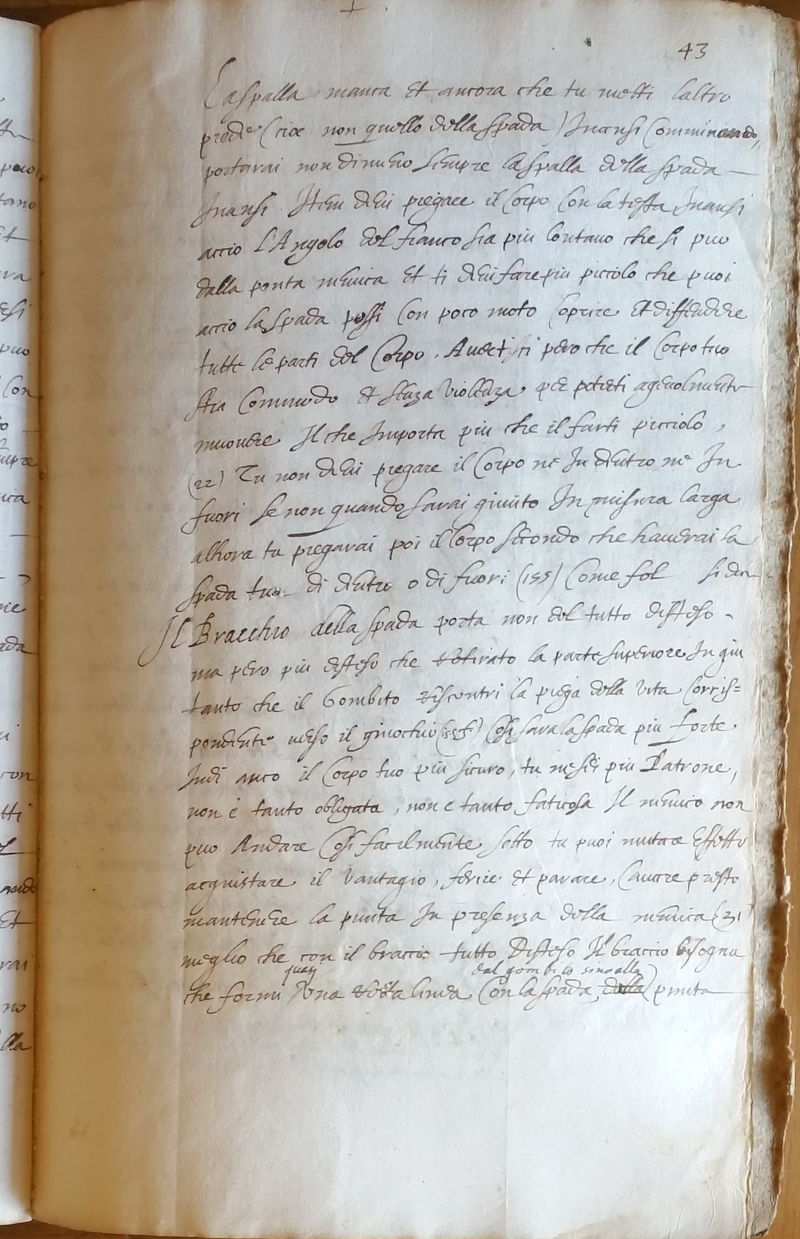 43
La spalla manca et ancora che tu metti laltro
piede (cioe non quello della spada) Inansi Comminando,
portarai non di meno sempre la spalla della spada
Inansi. Item devi piegare il Corpo Con la testa Inansi
accio L'Angolo del fianco sia piu lontano che si puo
dalla ponta nemica et ti devi fare piu piccolo che puoi
accio la spada possi Con poco moto Coprire et diffendere
tutte le parti del Corpo. Avertisci pero che il Corpo tuo
stia Commodo et senza violenza per poterti agevolmente
muovere Il che Importa piu che il farti picciolo,
(22) Tu non devi piegare il Corpo ne In dentro ne In
fuori se non quando sarai giunto In misura larga
alhora tu piegarai poi il Corpo secondo che haverai la
spada tua di dentro o di fuori (155) Come fol
Il Bracchio della spada porta non del tutto disteso
ma pero piu disteso che retirato la parte superiore In giu
tanto che il Gombito riscontri la piega della vita Corris=
pondente verso il ginochio Cosi sara la spada piu forte
Indi anco il Corpo tuo piu sicuro, tu piu Patrone,
non è tanto obligata, non e tanto faticosa Il nemico non
puo Andare Cosi facilmente sotto tu puoi mutare Effetto
acquistare il Vantagio, ferire et parare, Cavare presto
mantenere la punta In presenza della nemica
meglio che con il braccio tutto Disteso Il braccio bisogna
quasi dal gombito sino alla
che formi Una retta linea Con la spada, dalla punta